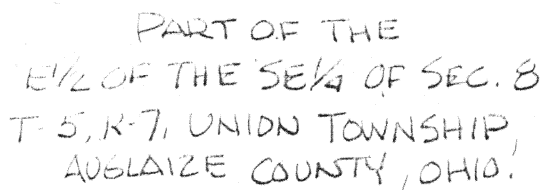 PART OF THE
E1/2 OF THE SE1/4 OF SEC. 8
T-5, R-7, UNION TOWNSHIP,
AUGLAIZE COUNTY, OHIO.